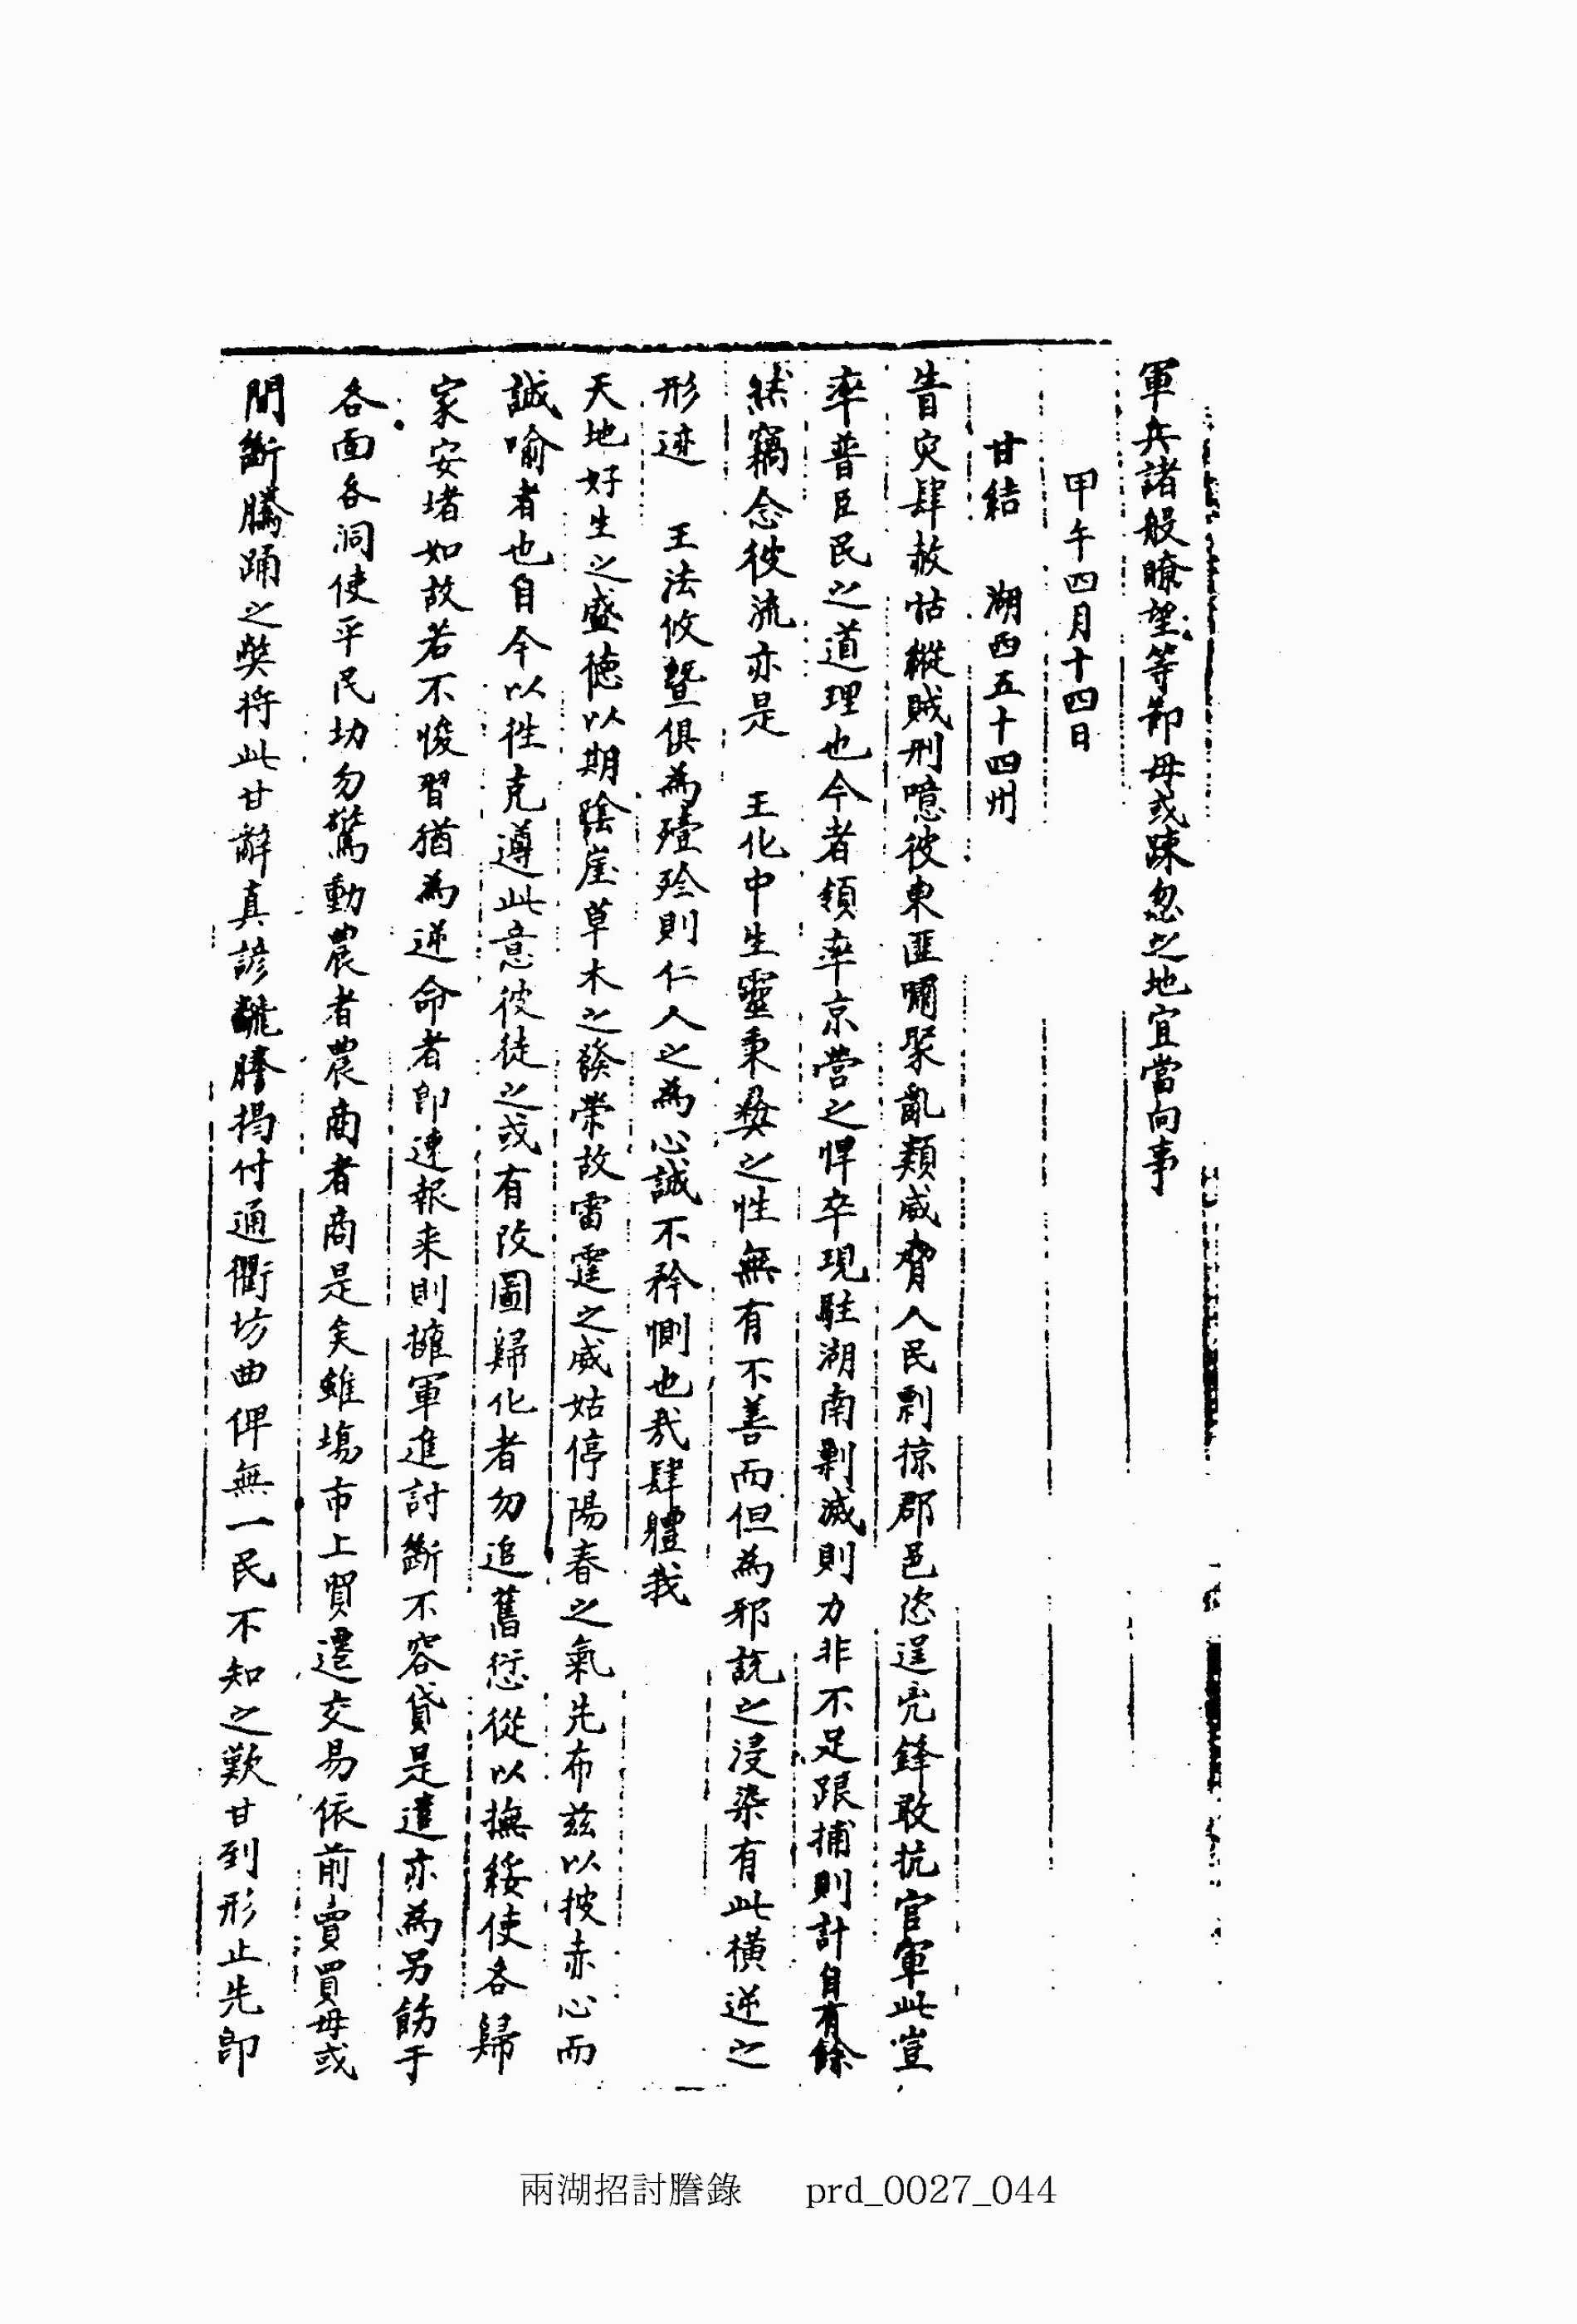 軍兵諸般瞭望等節毋或踈忽之地宜當向事
甲午四月十四日
甘結 湖西五十四州
眚灾肆赦怙縱賊刑噫彼東匪嘯聚亂類威脅人民剽掠郡邑恣逞兇鋒敢抗官軍此豈
率普臣民之道理也今者領率京營之悍卒現駐湖南剿滅則力非不足跟捕則計自有餘
然竊念彼流亦是 王化中生靈秉彜之性無有不善而但為邪說之浸染有此橫逆之
形迹 王法攸曁俱為殪殄則仁人之為心誠不矜惻也我肆體我
天地好生之盛德以期陰崖草木之發榮故雷霆之威姑停陽春之氣先布玆以披赤心而
誠喻者也自今以徃克遵此意彼徒之或有改圖歸化者勿追舊愆從以撫綏使各歸
家安堵如故若不悛習猶為逆命者卽速報来則擁軍進討斷不容貸是遣亦為另飭于
各面各洞使平民切勿驚動農者農商者商是矣雖塲市上貿遷交易依前賣買毋或
間斷騰踊之獘將此甘辭真諺飜謄揭付通衢坊曲俾無一民不知之歎甘到形止先卽
兩湖招討謄錄 prd_0027_044